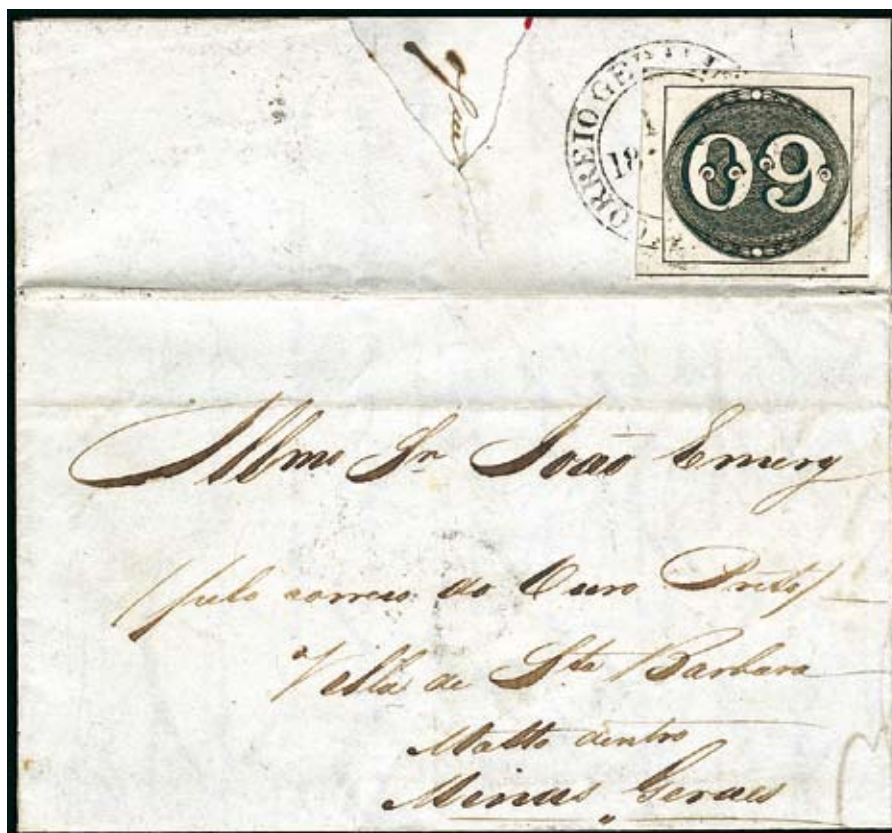 CORREIO GERAL
18
09
Illmo Sr João Emery
(pelo correio do Ouro Preto)
Villa de Sta Barbara
Matto dentro
Minas Geraes